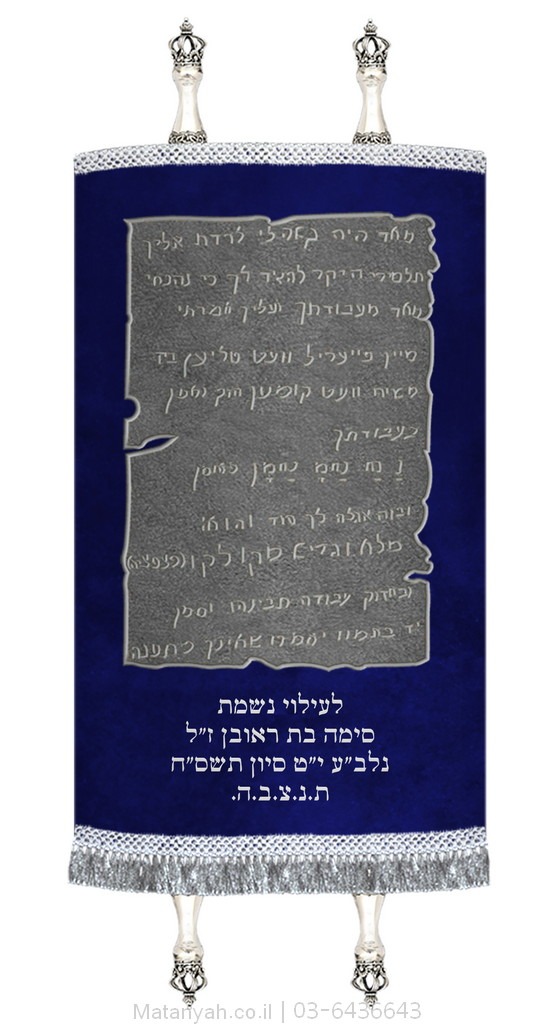 מאד היה באהלי לרדת אליך
תלמידי היקר להגיד לך כי נהניתי
מאד מעבודתך ועליך אמרתי
מיין פייעריל וועט טליען ביז
משיח וועט קומען חזק ואמץ
בעבודתך
נַ נַחְ נַחְמָ נַחְמָן מאומן
ובזה אגלה לך סוד והוא:
מלא וגדיש מקו לקו (פצפציה)
ובחיזוק עבודה תבינהו וסימן
יז בתמוז יאמרו שאינך מתענה
לעילוי נשמת
סימה בת ראובן ז״ל
נלב״ע י״ט סיון תשס״ח
ת.נ.צ.ב.ה.
Matanyah.co.il | 03-6436643